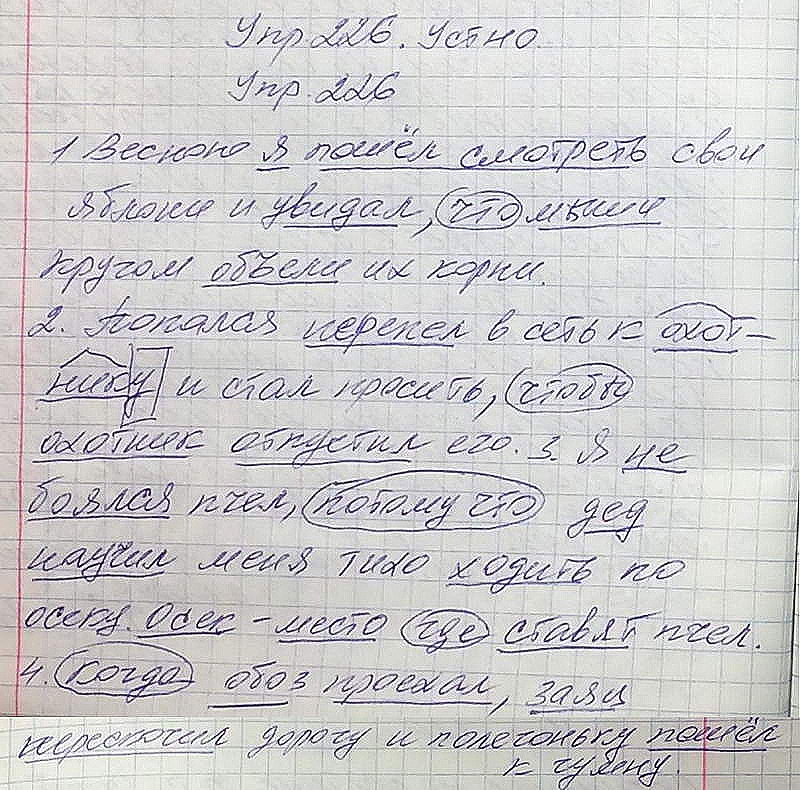 Упр. 226. Устно.
Упр. 226
1 Весною я пошёл смотреть свои
яблони и увидал, что мыши
кругом объели их корни.
2. Попался перепел в сеть к охот-
нику и стал просить, чтобы
охотник отпустил его. 3. Я не
боялся пчел, потому что дед
научил меня тихо ходить по
осеку. Осек - место где ставят пчел.
4. Когда обоз проехал, заяц
перескочил дорогу и полегоньку пошёл
к гумну.